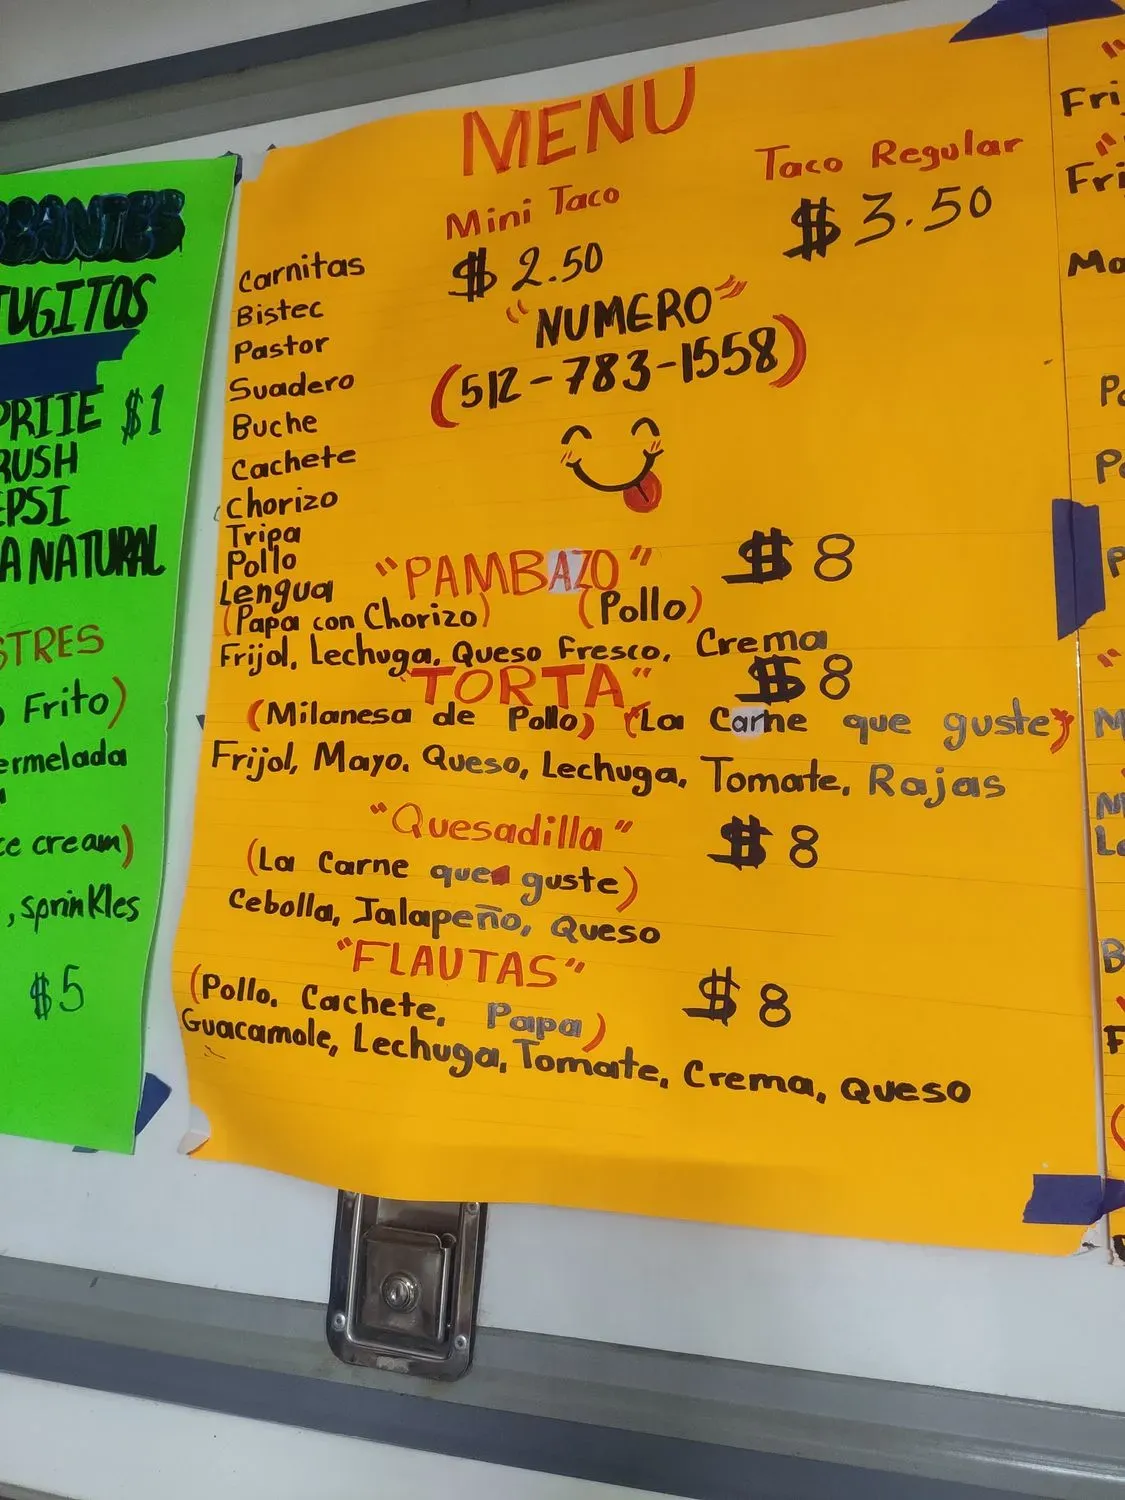 TUGITOS
$1
EPSI
NATURAL
Frito)
cream)
, sprinkles
$5
MENU
Mini Taco
Taco Regular
$ 2.50
$ 3.50
Carnitas
Bistec
Pastor
Suadero
Buche
Cachete
Chorizo
Tripa
Pollo
Lengua
"NUMERO"
(512-783-1558)
"PAMBAZO" $ 8
(Papa con Chorizo) (Pollo)
Frijol, Lechuga, Queso Fresco, Crema
"TORTA" $ 8
(Milanesa de Pollo) (La Carne que guste)
Frijol, Mayo. Queso, Lechuga, Tomate, Rajas
"Quesadilla" $ 8
(La Carne que guste)
Cebolla, Jalapeño, Queso
"FLAUTAS" $ 8
(Pollo. Cachete, Papa)
Guacamole, Lechuga, Tomate, Crema, Queso